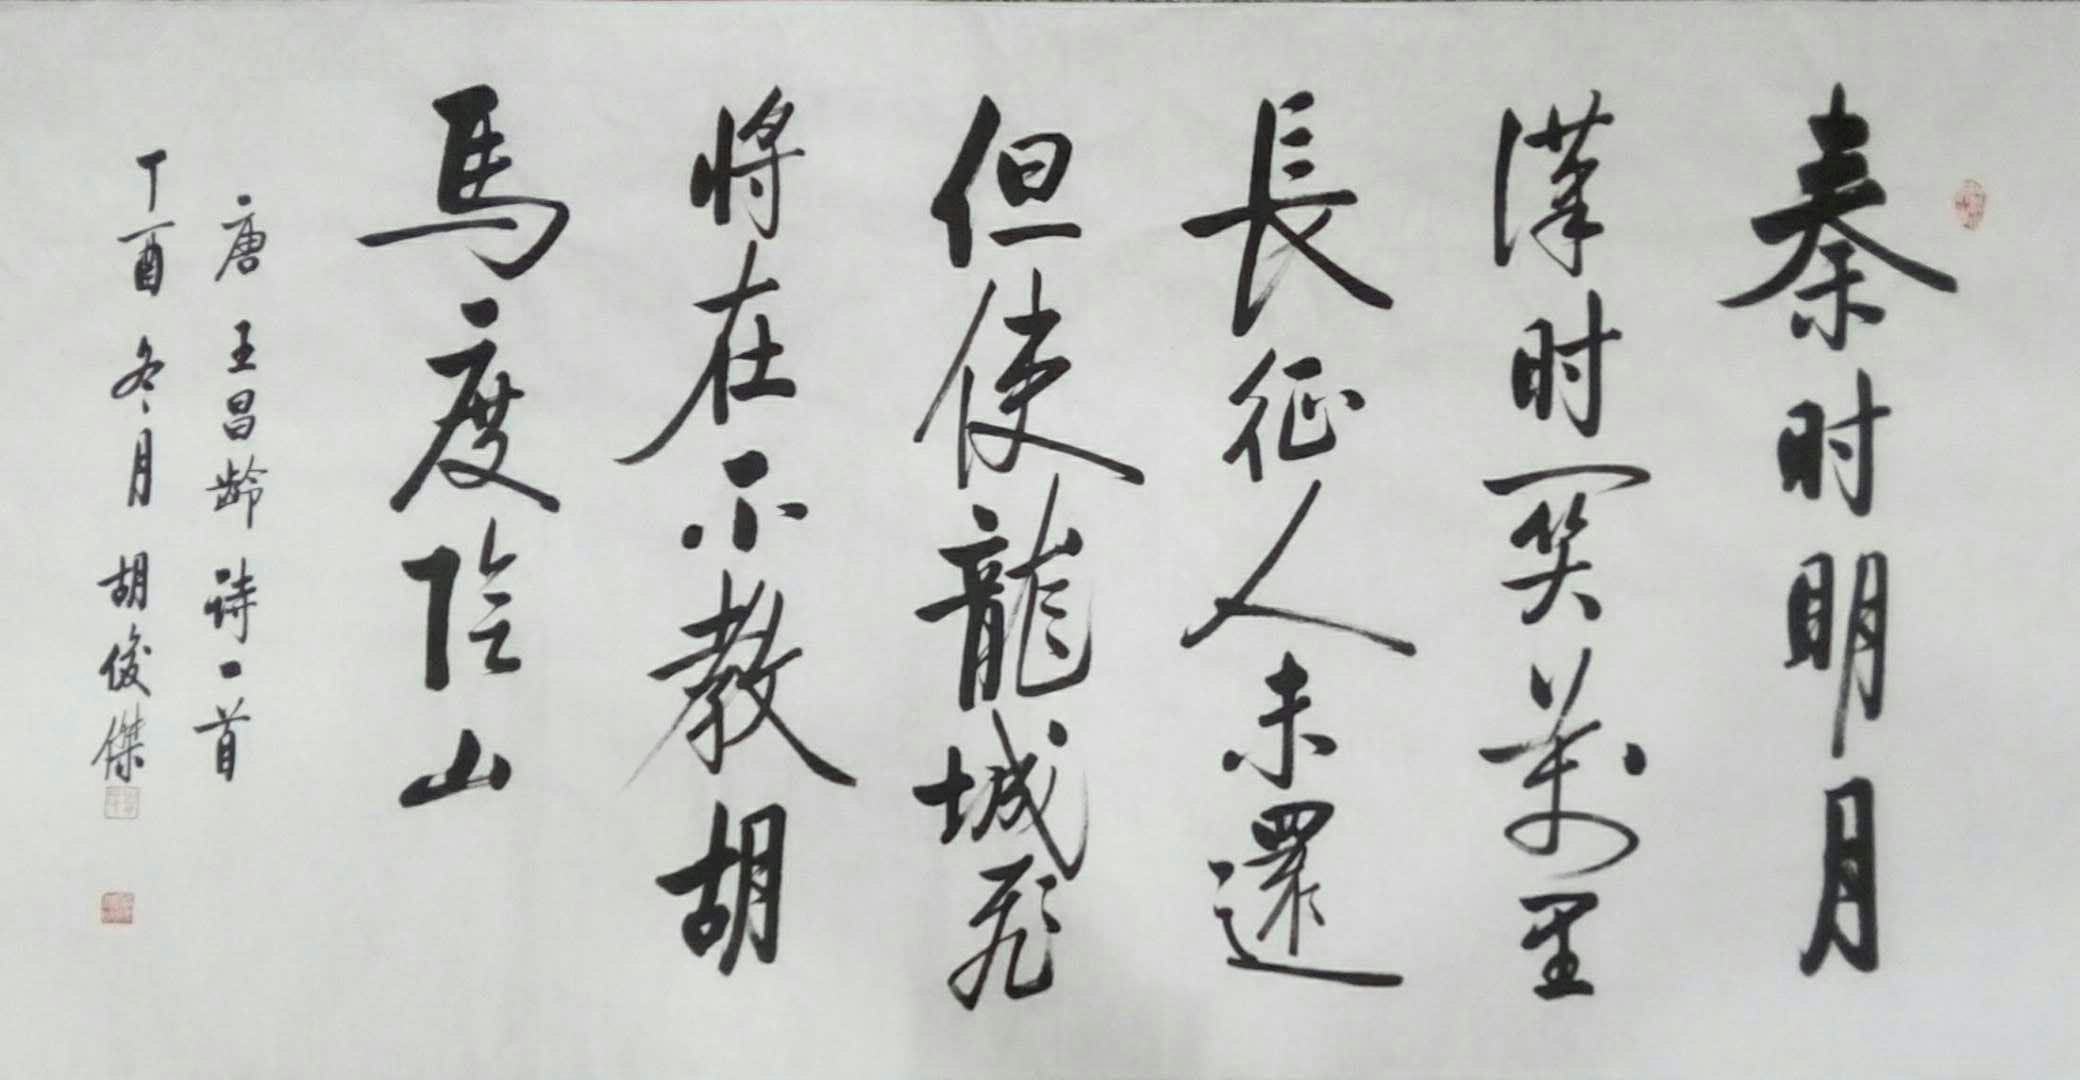 秦时明月
漢时関萬里
長征人未還
但使龍城飛
将在不教胡
馬度陰山
唐王昌齡詩一首
丁酉冬月胡俊傑